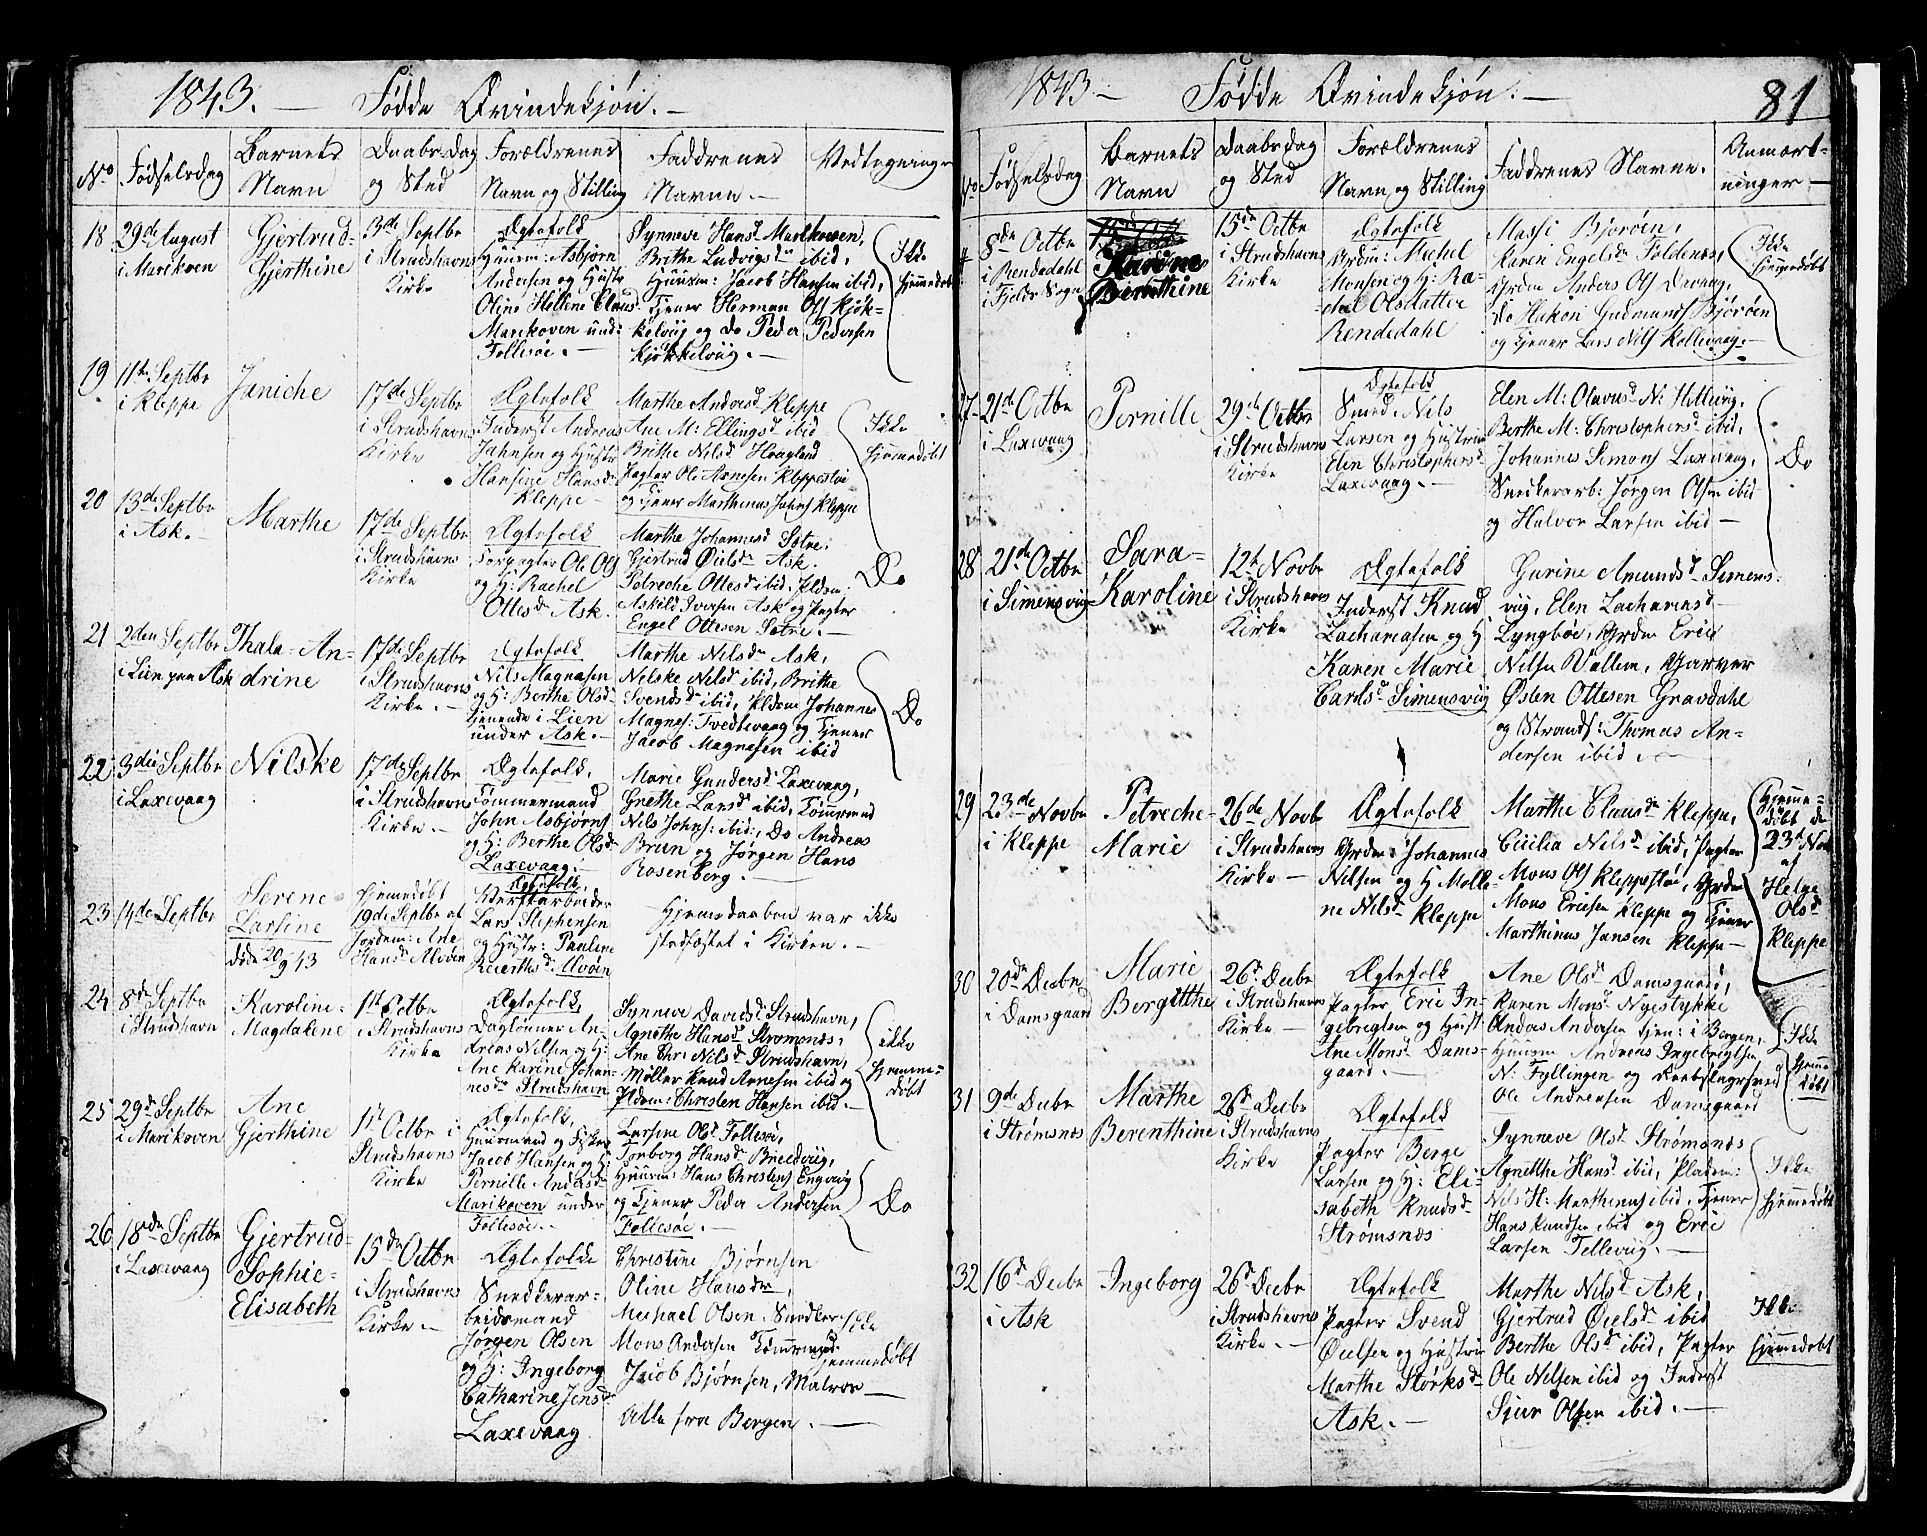 1843. — Fødde Qvindekjøn. —
No
Fødselsdag
Barnets
Navn
Daabsdag
og Sted
Forældrenes
Navn og Stilling
Faddrenes
Navne. —
Vedtegninger
18
29de August
i Marikoven
Gjertrud-
Gjerthine
3de Septbr
i Strudshavns
Kirke
Ægtefolk
Huusm: Asbjørn
Andersen og Hustr
Oline Hellene Claus
Marikoven und:
Follesøe. —
Synneve Hansd Marikoven,
Brithe Ludvigsdr ibid,
Huusm: Jacob Hansen ibid,
Tjener Herman Ols Kjøk-
kelviig og Do Peder Pedersen
Kjøkkelviig. —
Ikke
hjemmedøbt
19
11te Septbr
i Kleppe
Janiche
17de Septbr
i Strudshavns
Kirke
Ægtefolk
Inderst Andreas
Jahnsen og Hustr
Hansine Hansdr
Kleppe —
Marthe Andersd Kleppe
Ane M: Ellingsd ibid
Brithe Nilsd Hougland
Pagter Ole Arnesen Kleppestøe
og Tjener Marthinus Jahns Kleppe
Ikke
hjemmedøbt
20
13de Septbr
i Ask. —
Marthe
17de Septbr
i Strudshavns
Kirke
Ægtefolk
Forpagter Ole Ols
og H: Rachel
Ottesdr Ask.
Marthe Johannesd Sætre,
Gjertrud Øielsdr Ask.
Petreche Ottesd ibid, Pldsm
Askild Iversen Ask og Pagter
Engel Ottesen Sætre. —
Do
21
2den Septbr
i Lien paa Ask
Thala-An-
drine
17de Septbr
i Strudshavns
Kirke. —
Ægtefolk
Nils Magnesen
og H: Berthe Olsdr
tjenende i Lien
under Ask. —
Marthe Nilsdr Ask,
Nilske Nilsd ibid, Brithe
Svendsd ibid, Pldsm Johannes
Magnes: Tvedtevaag og Tjener
Jacob Magnesen ibid
Do
22
3die Septbr
i Laxevaag
Nilske
17de Septbr
i Strudshavns
Kirke. —
Ægtefolk,
Tømmermand
John Asbjørns
og H: Berthe Olsdr
Laxevaag. —
Marie Gundersd Laxevaag,
Grethe Larsd ibid, Tømmrmnd
Nils Johns: ibid:, Do Andreas
Bruun og Jørgen Hans
Rosenberg. —
23
14de Septbr
Serene
Larsine
døde 20/9 43
hjemmedøbt
19de Septbr af
Jordem: Ane
Hansd Alvøen
Ægtefolk,
Værftarbeider
Lars Stephensen
og Hustr: Pauline
Reiertsd: Alvøen
Hjemedaaben var ikke
stadfæstet i Kirken. —
24
8de Septbr
i Strudshavn
Karoline-
Magdalene
1st Octbr
i Strudshavns
Kirke
Ægtefolk,
Daglønner An-
dreas Nilsen og H:
Ane Karine Johan-
nesdr Strudshavn
Synneve Davidsd Strudshavn,
Agnethe Hansd Strømsnæs,
Ane Chr: Nilsd Strudshavn,
Møller Knud Arnesen ibid og
Pldsm: Christen Hansen ibid. —
ikke
hjemme-
døbt
25
29d Septbr
i Marikoven
Ane
Gjerthine
1st Octbr i
Strudshavns
Kirke
Ægtefolk,
Huusmand og Fisker
Jacob Hansen og H:
Pernille Andersdr
Marikoven under
Follesøe. —
Larsine Olsd Follesøe,
Torborg Hansd Breedviig,
Huusm: Hans Christens Engeviig
og Tjener Peder Andersen
Follesøe. —
Do
26
18de Septbr
i Laxevaag
Gjertrud-
Sophie-
Elisabeth
15de Octbr
i Strudshavns
Kirke. —
Ægtefolk
Snedkerar-
beidsmand
Jørgen Olsen
og H: Ingeborg
Catharine Jensd
Laxevaag
Christine Bjørnsen
Oline Hansdr,
Michael Olsen, Snedker
Mons Andersen Tømmrmd.
Jacob Bjørnsen, Matros —
Alle fra Bergen. —
Ikke
hjemmedøbt
1843 — Fødde Qvindekjøn: —
81
No
Fødselsdag
Barnets
Navn
Daabsdag
og Sted
Forældrenes
Navn og Stilling
Faddrenes Navne.
Anmærk-
ninger —
8de Octbr
i Rendedahl
i Fjelds Sogn
Karine
Berenthine
15de Octbr
i Strudshavns
Kirke
Ægtefolk
Grdm: Michel
Monsen og H: Ra-
chel Olsdatter
Rendedahl
Massi Bjorøen,
Karen Engelsdr Foldenæs,
Grdm Anders Ols
do Hakon Gudmunds Bjorøen
og Tjener Lars Nils Kallevaag. —
Ikke
hjemmedøbt
27
21de Octbr
i Laxevaag
Pernille
29de Octbr
i Strudshavns
Kirke
Ægtefolk
Smed Nils
Larsen og Hustrue
Elen Christophersd
Laxevaag. —
Elen M: Olavusd N: Helleviig,
Berthe M: Christophersd ibid,
Johannes Simons Laxevaag,
Snedkerarb: Jørgen Olsen ibid
og Halvor Larsen ibid —
Do
28
21de Octbr
i Simensviig
Sara-
Karoline
12te Novbr
i Strudshavns
Kirke
Ægtefolk
Inderst Knud
Zachariasen og H:
Karen Marie
Cardsd Simensviig
Gurine Amundsdr Simens-
viig, Elen Zachariasd
Lyngbøe, Grdm Eric
Nilsen Vallem, Garver
Østen Ottesen Gravdahl
og Strands: Thomas An-
dersen ibid. —
29
23de Novbr
i Kleppe
Petreche-
Marie
26de Novbr
i Strudshavns
Kirke —
Ægtefolk
Grdm: Johannes
Nilsen og H Malle-
ne Nilsdr Kleppe
Marthe Clausdr Kleppe,
Cicilia Nilsd ibid, Pagter
Mons Ols Kleppestøe, Grdm
Mons Ericsen Kleppe og Tjener
Marthinus Jansen Kleppe —
Hjemme-
døbt de
23d Nov
af
Helge
Olsd
Kleppe
30
20de Decbr
i Damsgaard
Marie
Bergitthe
26d Decbr
i Strudshavns
Kirke —
Ægtefolk
Pagter Eric In-
gebregtsen og Hust
Ane Monsd Dams-
gaard. —
Ane Olsd Damsgaard,
Karen Monsd Nygestykke
Anders Andersen tjen: i Bergen,
Huusm Andreas Ingebrigtsen
N: Fyllingen og
Ole Andreasen Damsgaard
Ikke
hjemme
døbt
31
9de Decbr
i Strømsnæs
Marthe
Berenthine
26d Decbr
i Strudshavns
Kirke
Ægtefolk
Pagter Berge
Larsen og H: Eli-
sabeth Knudsdr
Strømsnæs
Synneve Olsd Strømsnæs
Agnethe Hansd ibid, Pladsm:
Nils H: Marthinus ibid, Tjener
Hans Knudsen ibid og Eric
Larsen Telleviig. —
Ikke
hjemmedøbt
32
16d Decbr
i Ask
Ingeborg
26d Decbr
i Strudshavns
Kirke. —
Ægtefolk
Pagter Svend
Øielsen og Hustrue
Marthe Størksd
Ask. —
Marthe Nilsd Ask,
Gjertrud Øielsdr ibid
Berthe Olsd ibid, Pagter
Ole Nilsen ibid og Inderst
Sjur Olsen ibid. —
Ikke
hjemmedøbt